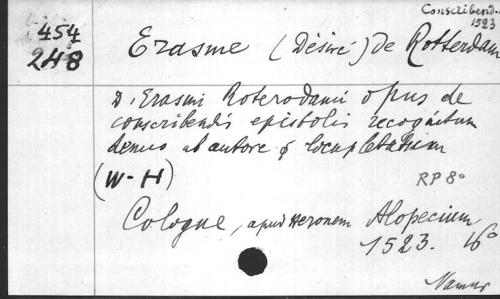 Conscribend..
1523
454
248
Erasme (Désiré) de Rotterdam
D. Erasmi Roterodami opus de
conscribendis epistolis recognitum
denuo ab autore & locupletatum
(W-H)
RP 8º
Cologne, apud Heronem Alopecium
1523. 16º
Namur